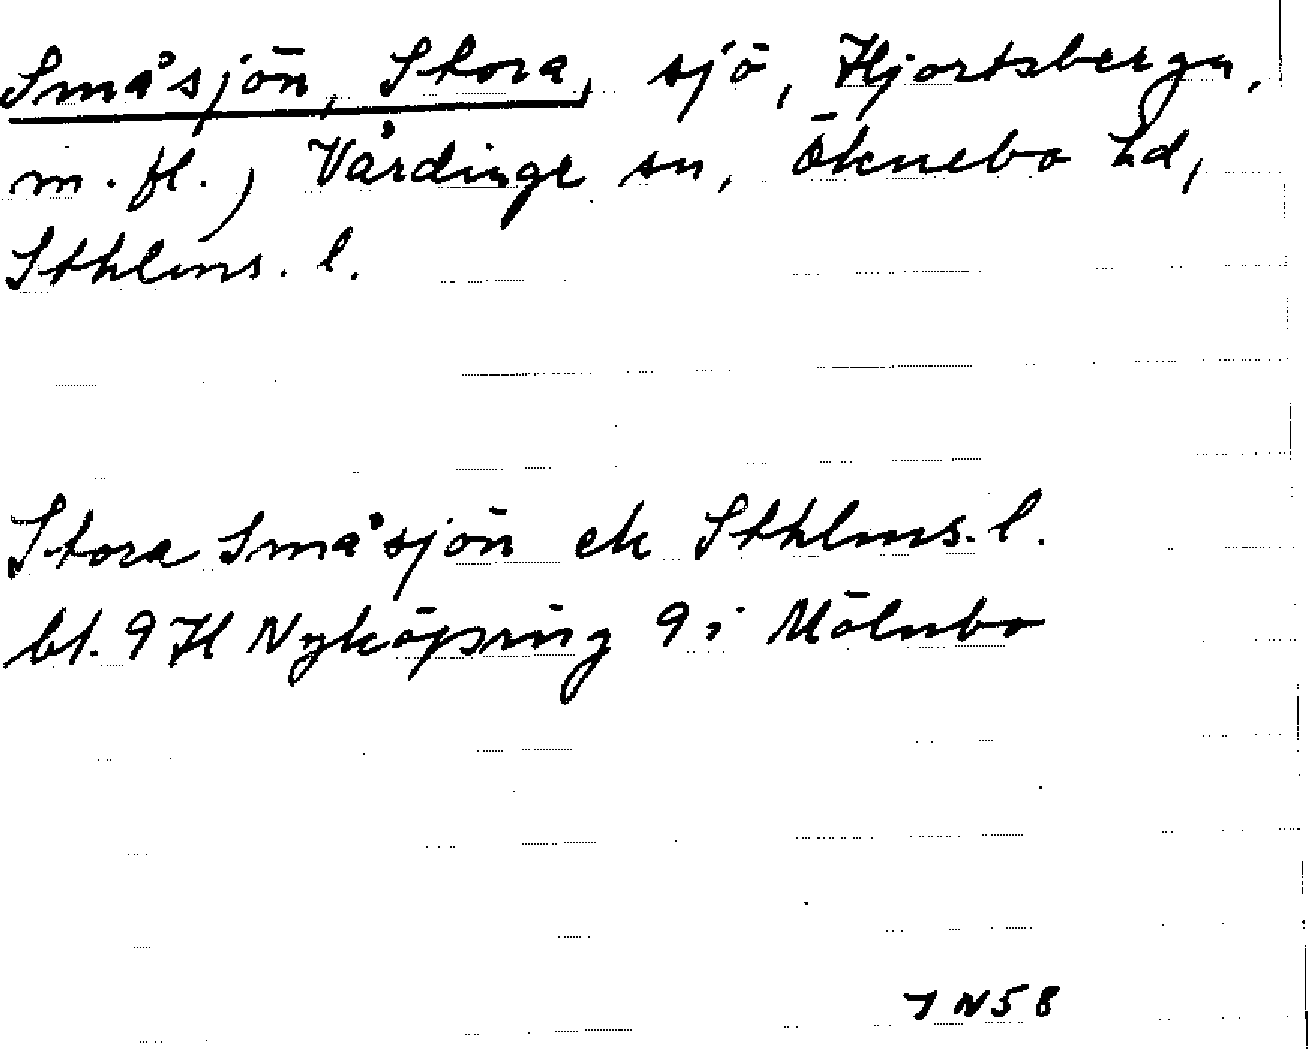 Småsjön, Stora, sjö, Hjortsberga,
m.fl., Vårdinge sn, Öknebo hd,
Sthlms. l.
Stora Småsjön ek Sthlms. l.
bl. 9H Nyköping 9i Mölnbo
7 N 5 8